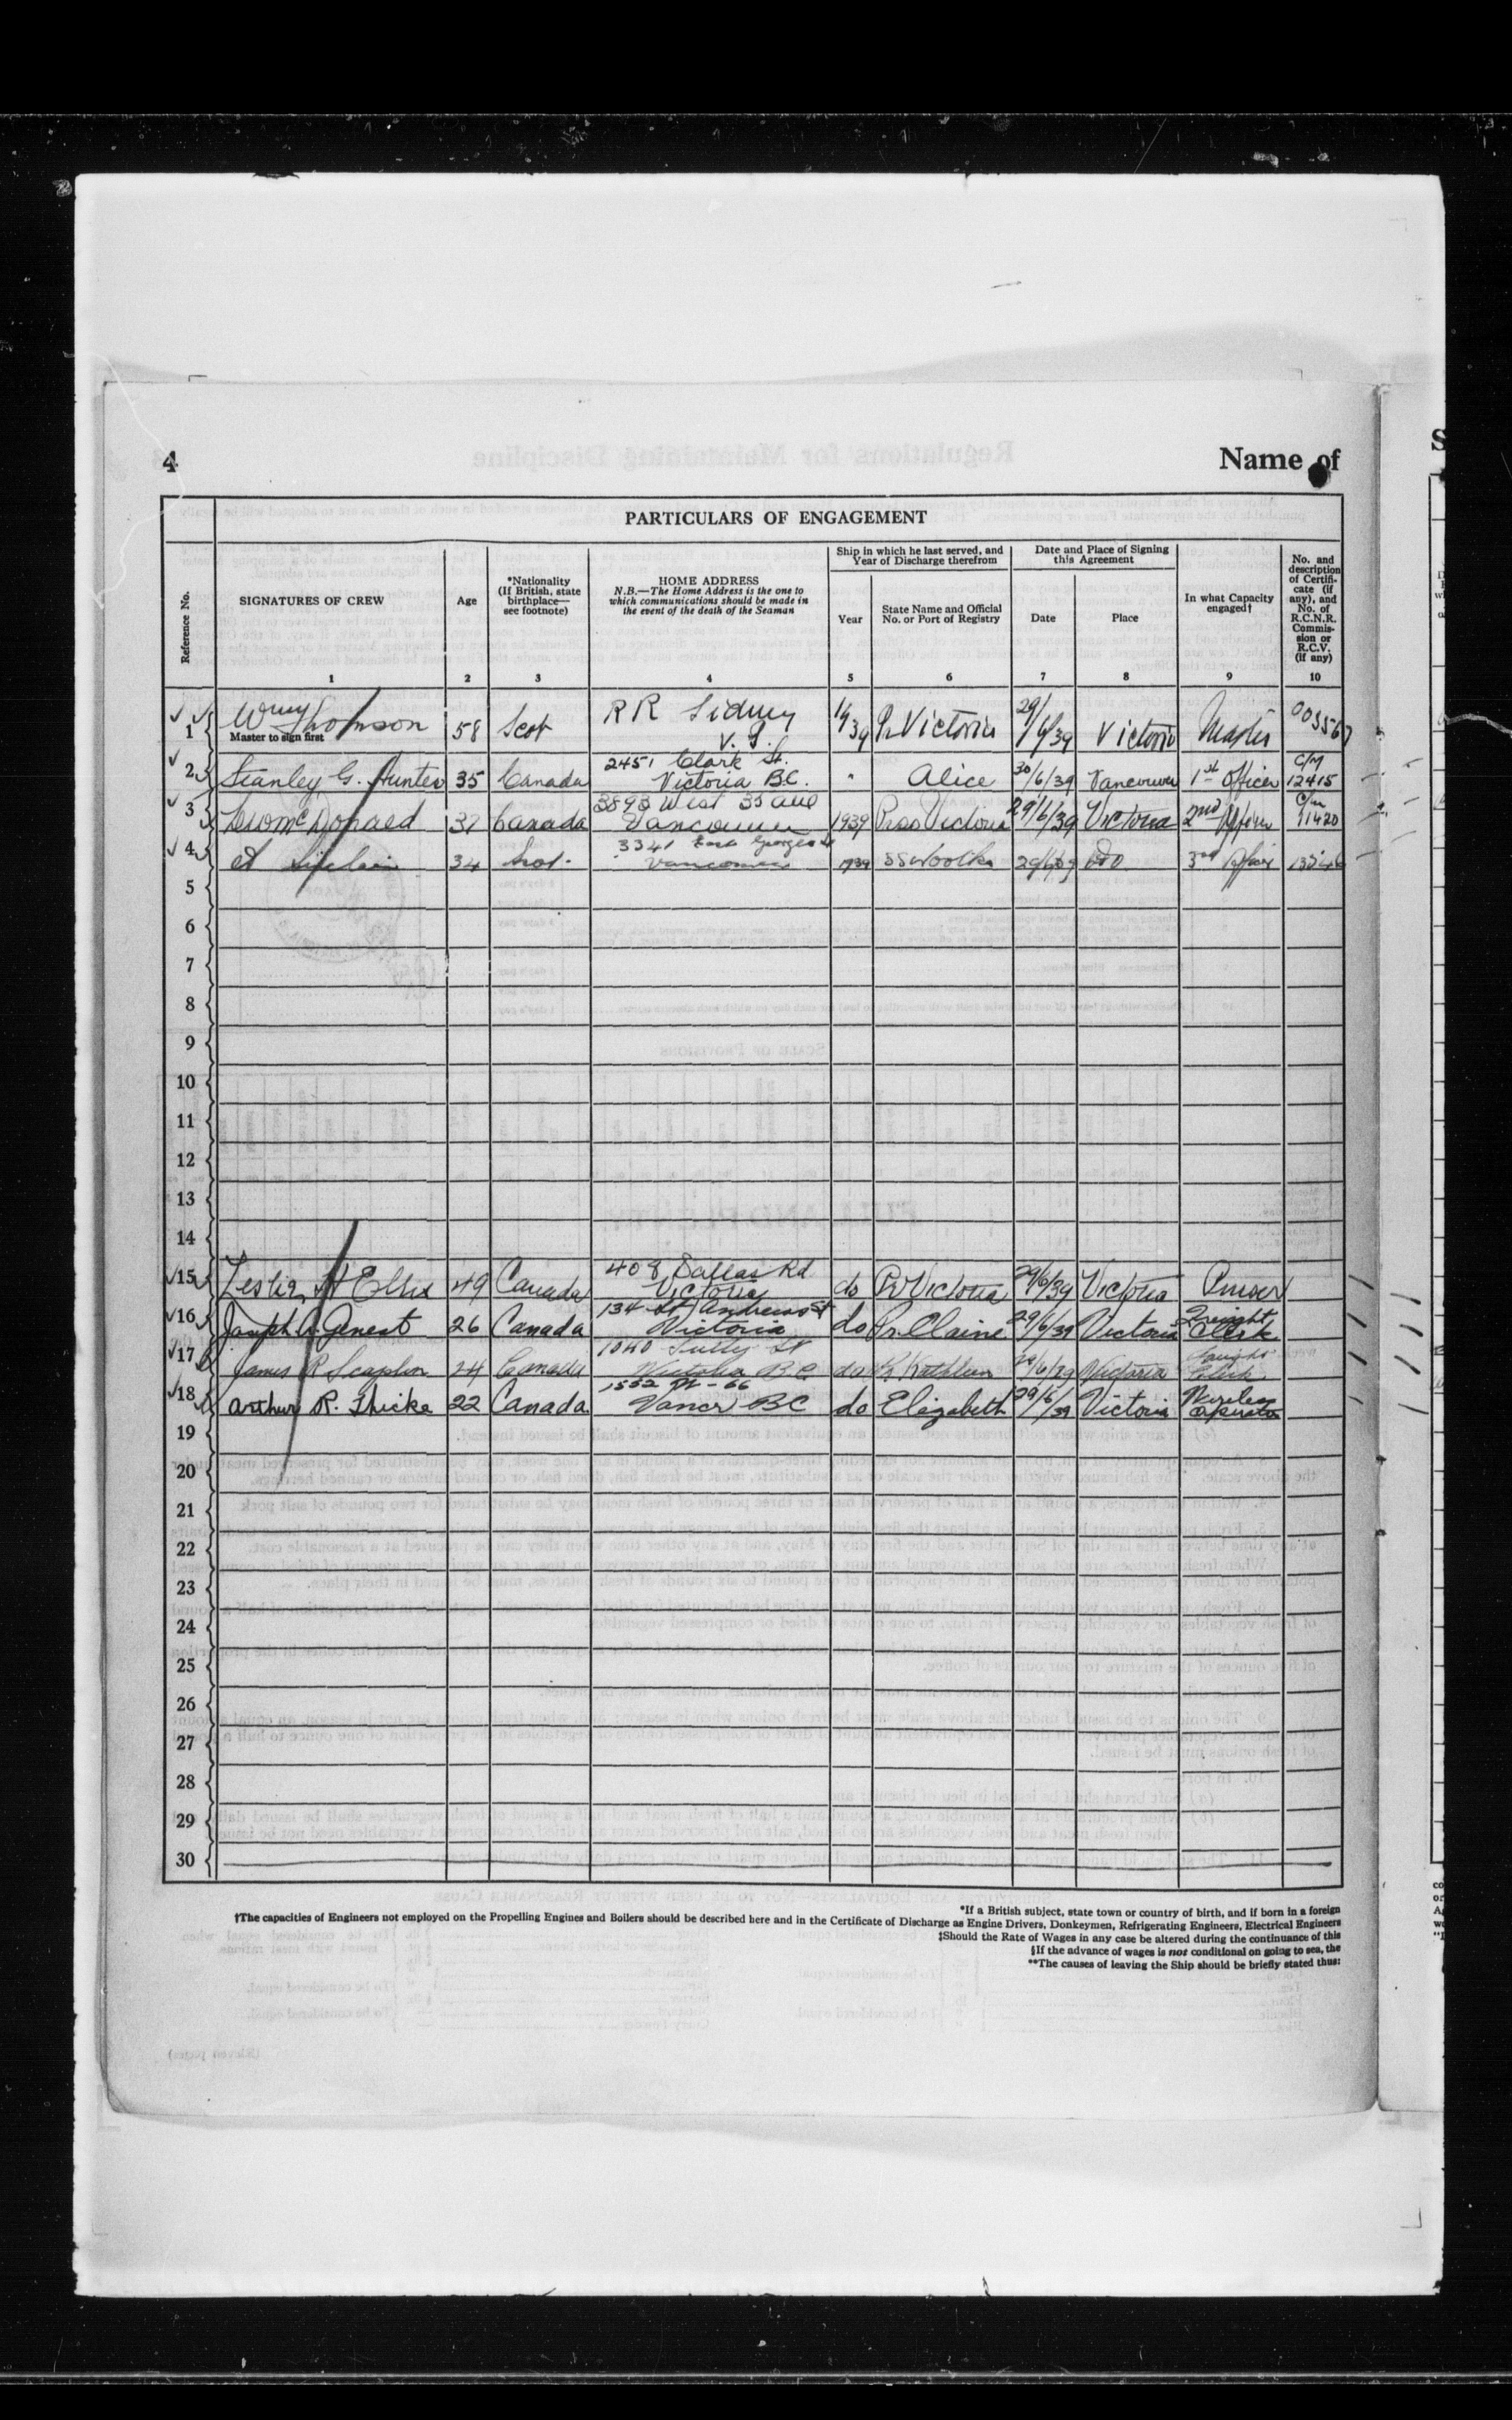 4
Name of
PARTICULARS OF ENGAGEMENT
Reference No.
SIGNATURES OF CREW
Age
*Nationality
(If British, state
birthplace—
see footnote)
HOME ADDRESS
N.B.—The Home Address is the one to
which communications should be made in
the event of the death of the Seaman
Ship in which he last served, and
Year of Discharge therefrom
Year
State Name and Official
No. or Port of Registry
Date and Place of Signing
this Agreement
Date
Place
In what Capacity
engaged†
No. and
description
of Certifi-
cate (if
any), and
No. of
R.C.N.R.
Commis-
sion or
R.C.V.
(if any)
1 2 3 4 5 6 7 8 9 10
1 Thomson 58 Scot R R Sidney V. I. Pr Victoria 29/6/39 Victoria Master
Master to sign first
2 Stanley G. Hunter 35 Canada 2451 Clark St. Victoria B.C. " Alice 30/6/39 Vancouver 1st Officer C/M 12415
3 McDonald Canada 3893 West 35 ave Vancouver 1939 Victoria 29/6/39 Victoria 2nd Officer 11420
4 34 Scot. 3341 East Georgia St Vancouver 1939 SS Nootka 29/6/39 DO 3rd Officer
5
6
7
8
9
10
11
12
13
14
15 Leslie H Ellis 49 Canada 408 Dallas Rd Victoria do Pr Victoria 29/6/39 Victoria Purser
16 Joseph A. Genest 26 Canada 134 St Andrews St Victoria do Pr. Elaine 29/6/39 Victoria Freight Clerk
17 James R 24 Canada 1040 Sutlej St Victoria B.C. do Kathleen 29/6/39 Victoria Freight Clerk
18 Arthur R. Thicke 22 Canada 1552 W - 66 Vancr BC do Elizabeth 29/6/39 Victoria Wireless Operator
19
20
21
22
23
24
25
26
27
28
29
30
*If a British subject, state town or country of birth, and if born in a foreign
†The capacities of Engineers not employed on the Propelling Engines and Boilers should be described here and in the Certificate of Discharge as Engine Drivers, Donkeymen, Refrigerating Engineers, Electrical Engineers
‡Should the Rate of Wages in any case be altered during the continuance of this
§If the advance of wages is not conditional on going to sea, the
**The causes of leaving the Ship should be briefly stated thus: